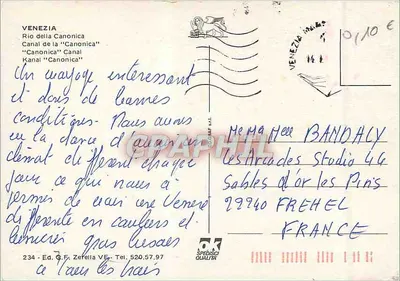 VENEZIA
Rio della Canonica
Canal de la "Canonica"
"Canonica" Canal
Kanal "Canonica"
Un voyage intéressant
et dans de bonnes
conditions. Nous avons
eu la chance d'avoir un
climat différent chaque
jour ce qui nous a
permis de voir une Venise
différente en couleurs et
lumières gros baisers
à tous les trois
234 - Ed. G.F. Zerella VE - Tel. 520.57.97
VENEZIA
0,10 €
Me Mlle BANDALY
les Arcades Studio 44
Sables d'or les Pins
29240 FREHEL
FRANCE